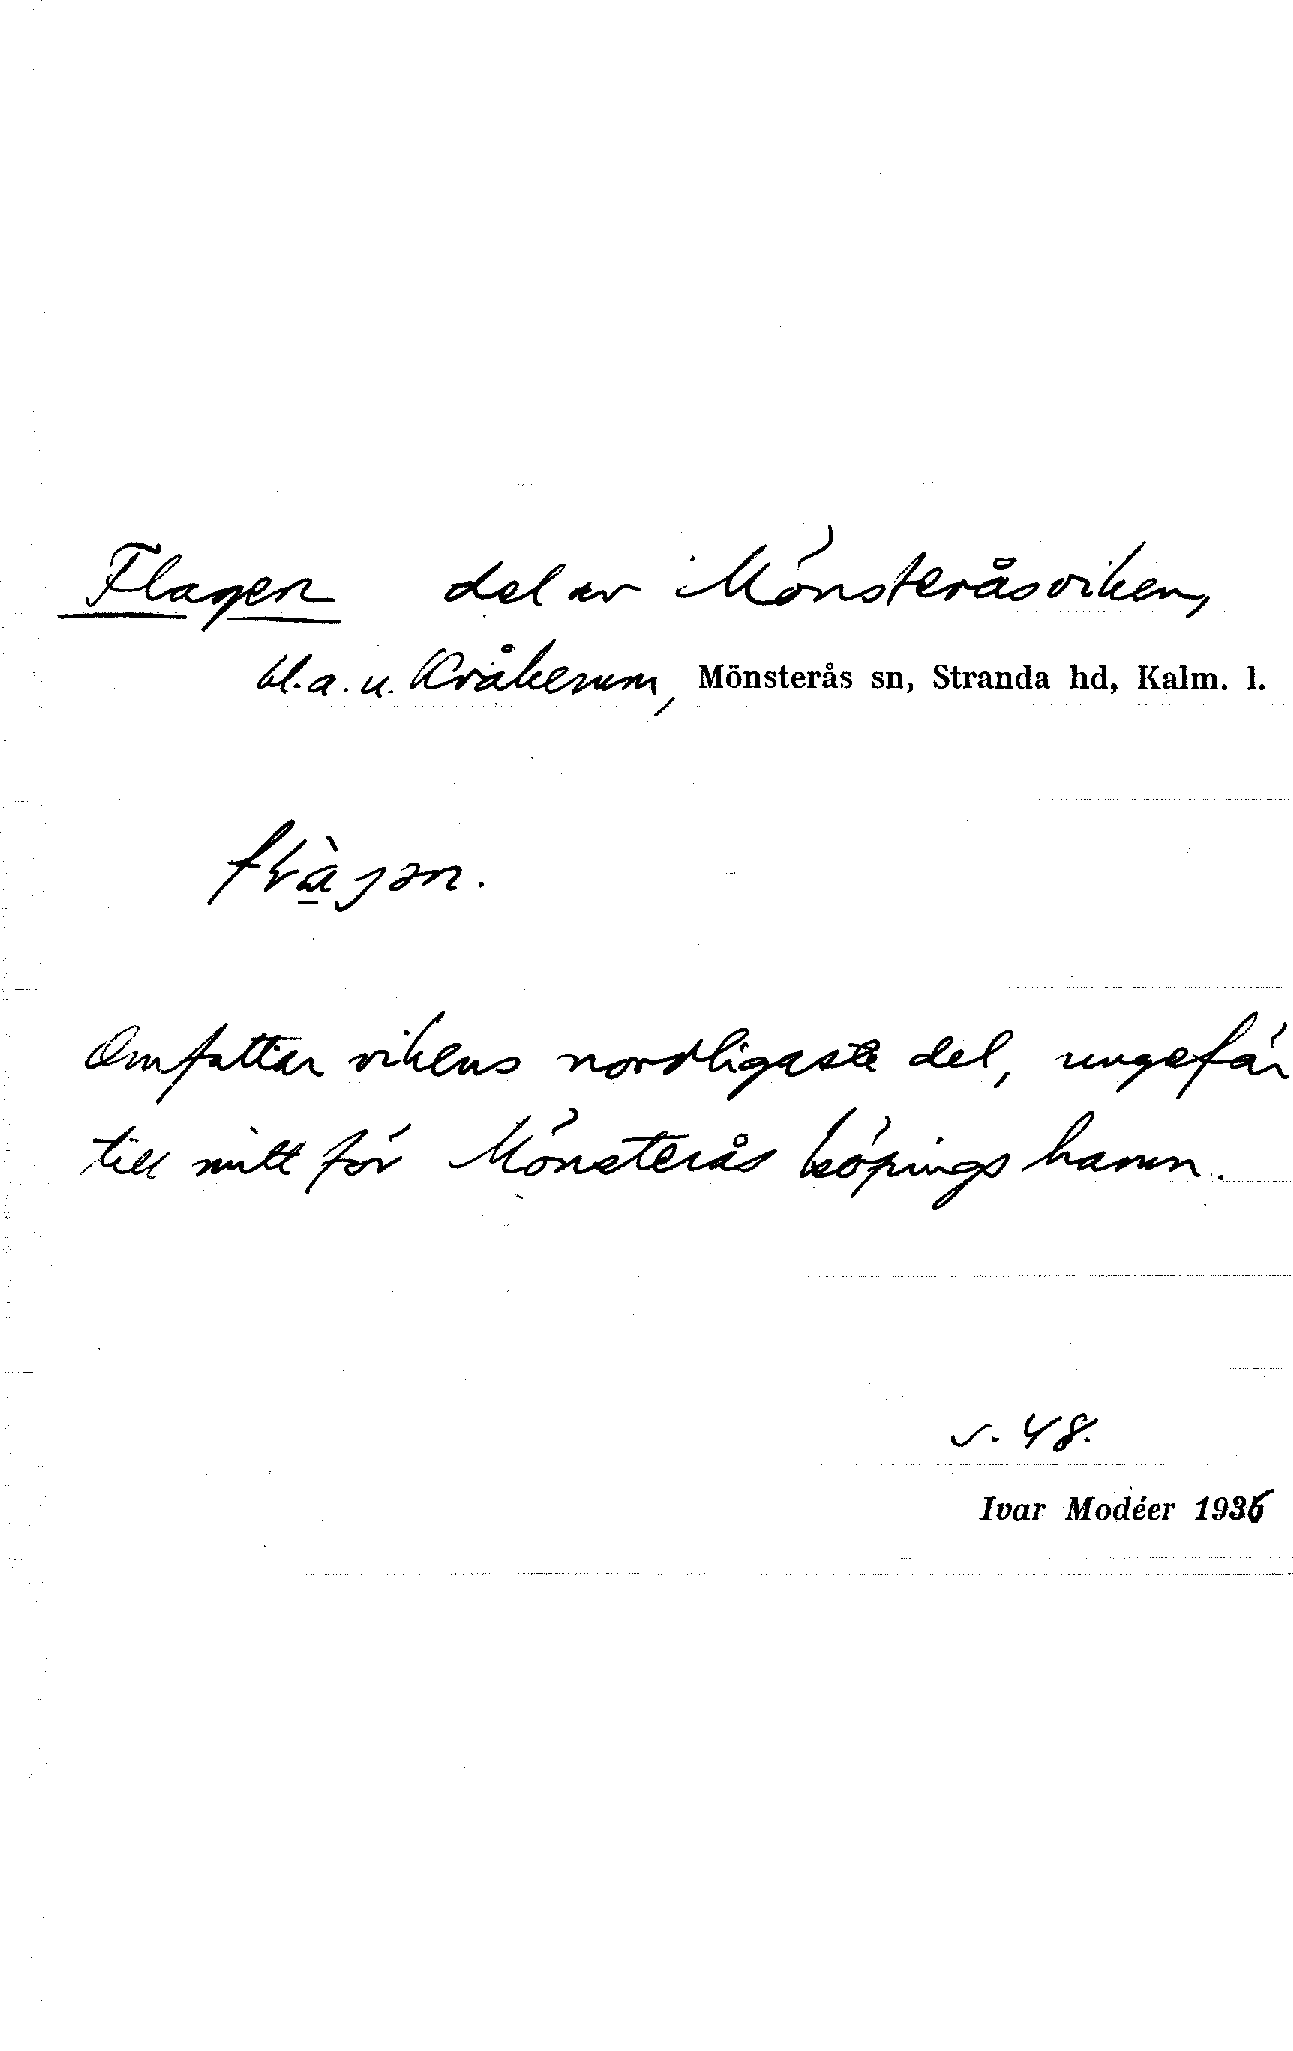 Flagen del av Mönsteråsviken,
bl.a.u. Kråkerum, Mönsterås sn, Stranda hd, Kalm. l.
Omfattar vikens nordligaste del, ungefär
till mitt för Mönsterås köpings hamn.
s. 48.
Ivar Modéer 1936